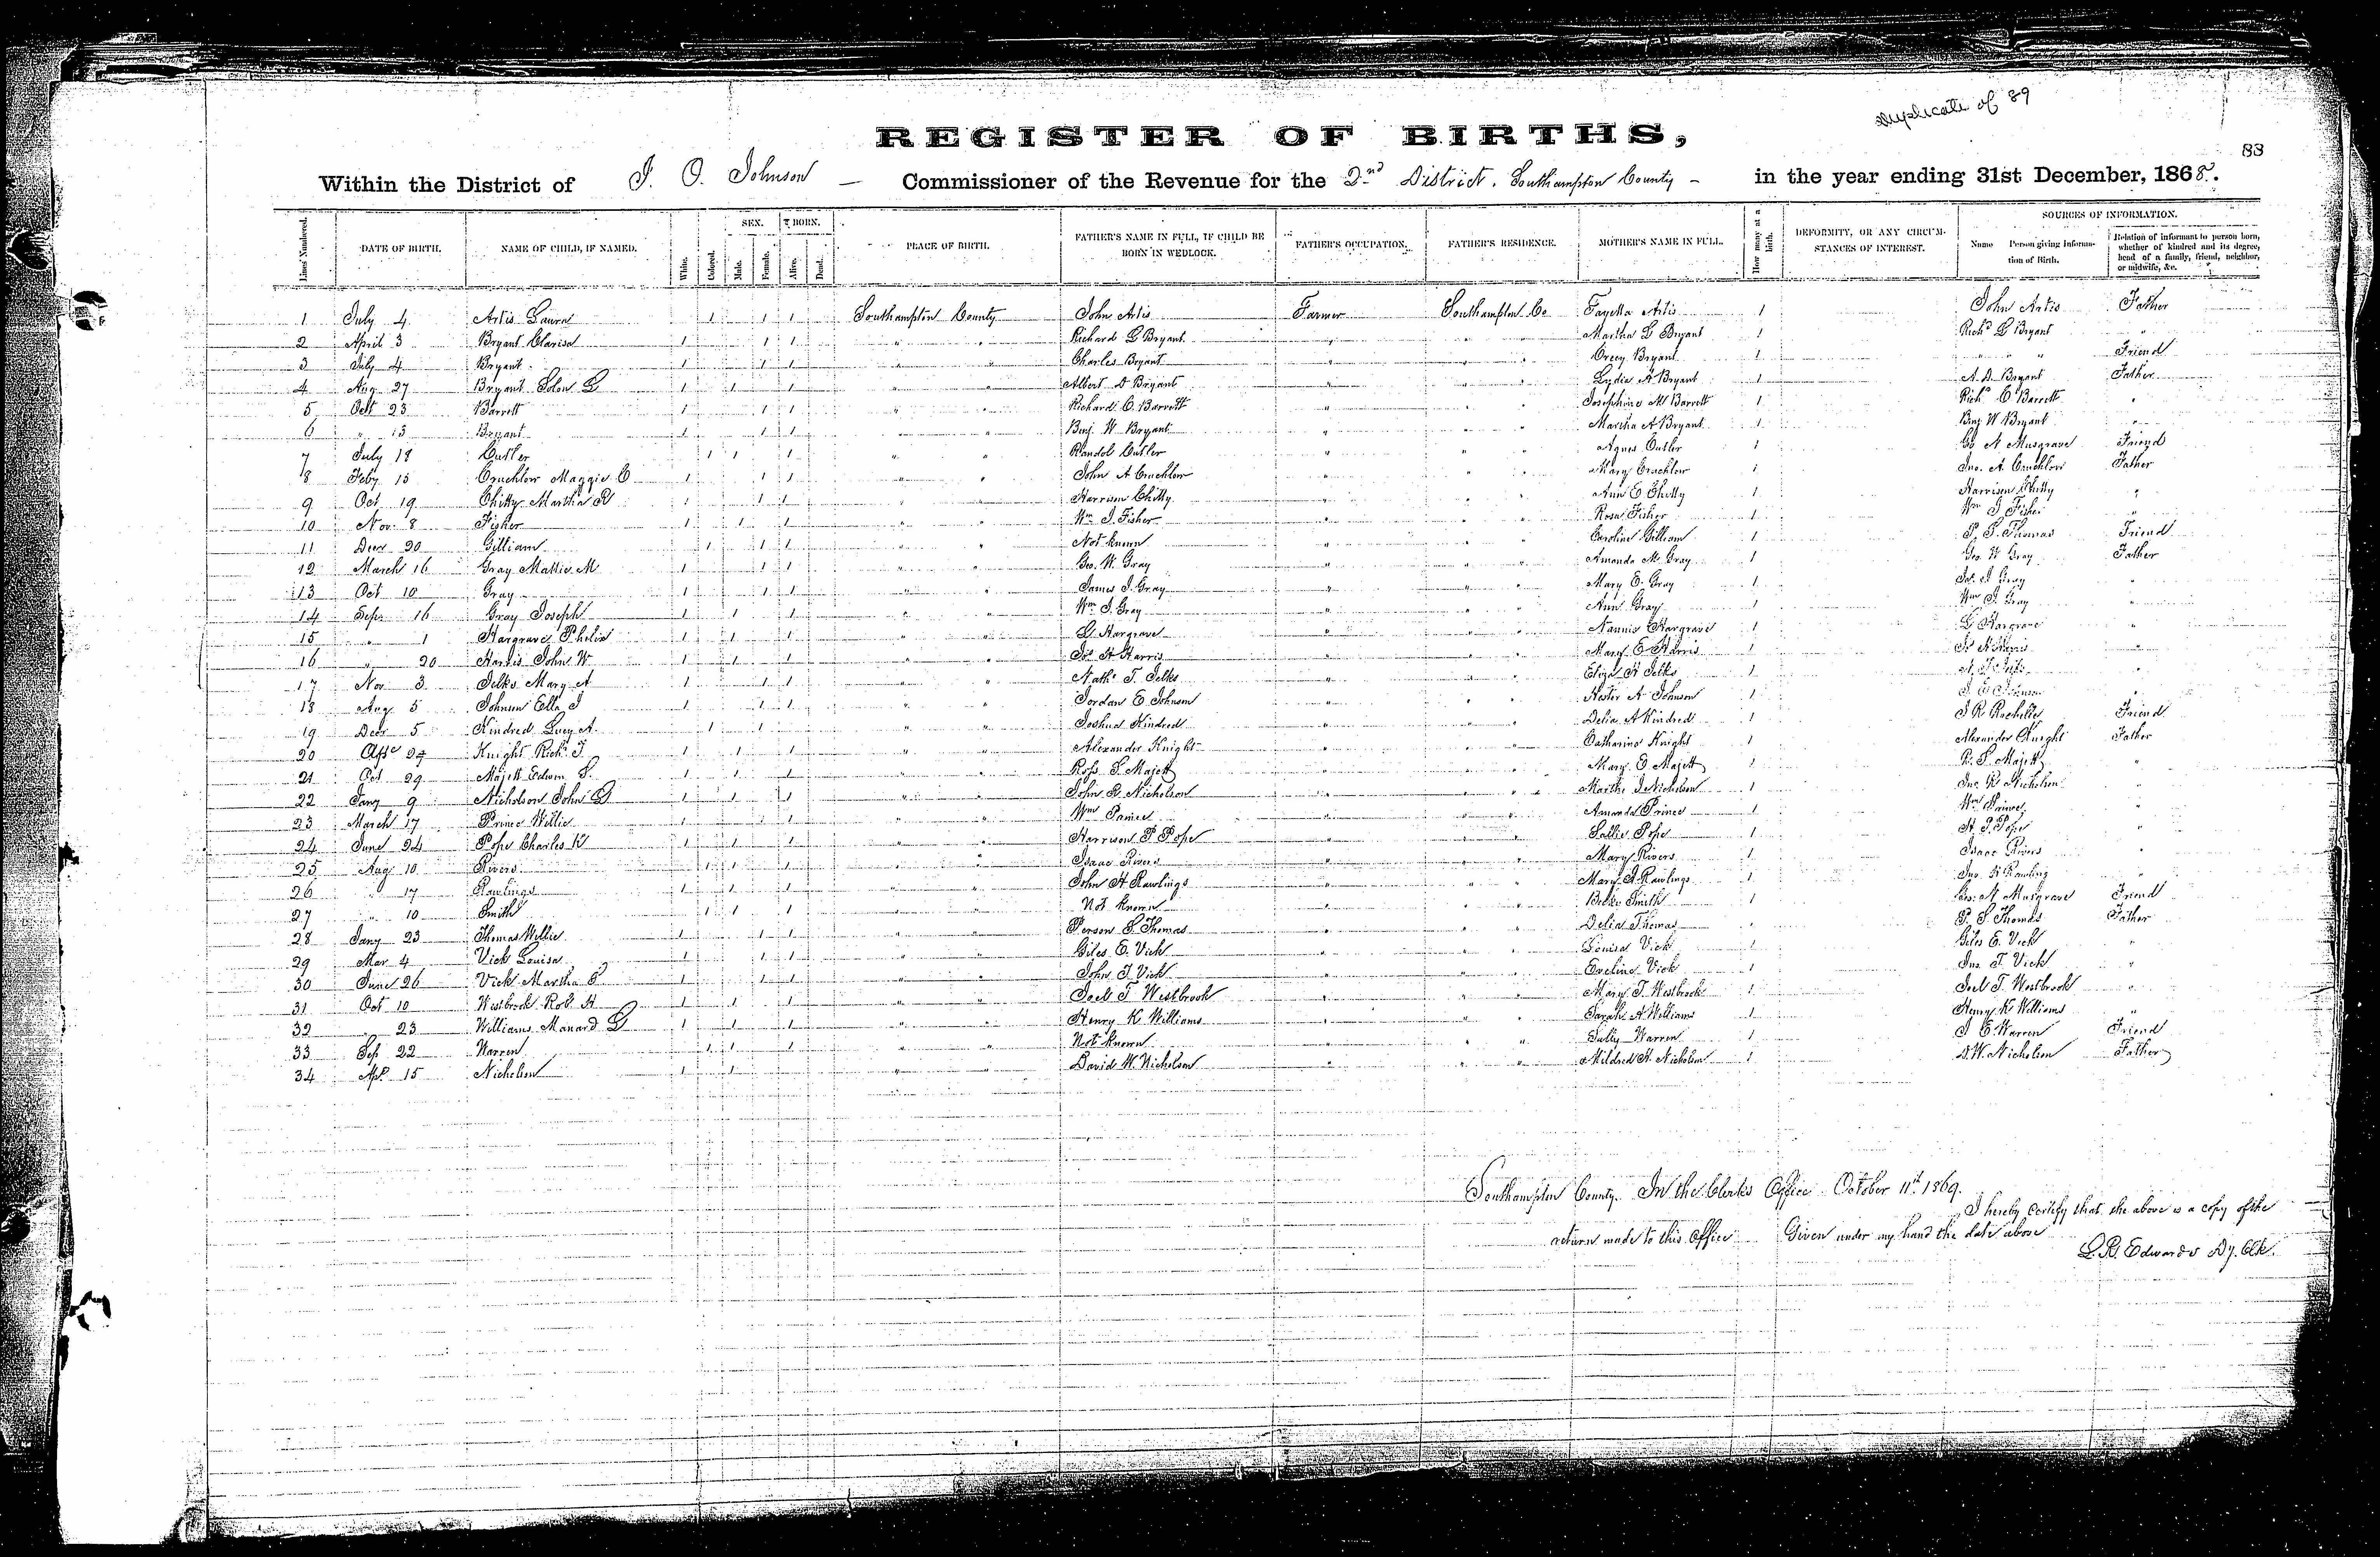 Duplicate of 89
REGISTER OF BIRTHS,
83
Within the District of J. O. Johnson — Commissioner of the Revenue for the 2nd District. Southampton County — in the year ending 31st December, 1868.
Lines Numbered. DATE OF BIRTH. NAME OF CHILD, IF NAMED. White. Colored. SEX. Male. Female. BORN. Alive. Dead. PLACE OF BIRTH. FATHER'S NAME IN FULL, IF CHILD BE BORN IN WEDLOCK. FATHER'S OCCUPATION. FATHER'S RESIDENCE. MOTHER'S NAME IN FULL. How many at a birth. DEFORMITY, OR ANY CIRCUMSTANCES OF INTEREST. SOURCES OF INFORMATION. Name Person giving Information of Birth. Relation of informant to person born, whether of kindred and its degree, head of a family, friend, neighbor, or midwife, &c.
1 July 4 Artis Laura 1 1 1 Southampton County John Artis Farmer Southampton Co Artis 1 John Artis Father
2 April 3 Bryant Clarisa 1 1 1 " " Richard L Bryant " " " Martha L Bryant 1 Richd L Bryant "
3 July 4 Bryant 1 1 1 " " Charles Bryant " " " Bryant 1 " " " Friend
4 Aug 27 Bryant Solon L 1 1 1 " " Albert D Bryant " " " Lydia A Bryant 1 A. D. Bryant Father
5 Oct 23 Barrett 1 1 1 " " Richard C. Barrett " " " Josephine M Barrett 1 Rich C Barrett "
6 " 13 Bryant 1 1 1 " " Benj W Bryant " " " Martha A Bryant 1 Benj W Bryant "
7 July 18 Cutler 1 1 1 " " Randol Cutler " " " Agnes Cutler 1 Geo N Musgrave Friend
8 Feby 15 Cruchlow Maggie C 1 1 1 " " John A Cruchlow " " " Mary Cruchlow 1 Jno. A. Cruchlow Father
9 Oct 19 Chitty Martha R 1 1 1 " " Harrison Chitty " " " Ann E Chitty 1 Harrison Chitty "
10 Nov 8 Fisher 1 1 1 " " Wm J. Fisher " " " Rosa Fisher 1 Wm J Fisher "
11 Decr 20 Gilliam 1 1 1 " " Not known " " " Caroline Gilliam 1 P. S. Thomas Friend
12 March 16 Gray Mattie M 1 1 1 " " Geo. W. Gray " " " Amanda M. Gray 1 Geo. W Gray Father
13 Oct 10 Gray 1 1 1 " " James J. Gray " " " Mary E. Gray 1 Jas. J Gray "
14 Sepr 16 Gray Joseph 1 1 1 " " Wm J. Gray " " " Ann Gray 1 Wm J. Gray "
15 " 1 Hargrave 1 1 1 " " L Hargrave " " " Nannie Hargrave 1 L Hargrave "
16 " 20 Harris John W 1 1 1 " " Jos H Harris " " " Mary E Harris 1 Harris "
17 Nov 3 Jelks Mary A 1 1 1 " " Nathl T. Jelks " " " Eliza H Jelks 1 N. T. Jelks "
18 Aug 5 Johnson Ella J 1 1 1 " " Jordan E. Johnson " " " Hester A Johnson 1 J. E Johnson "
19 Decr 5 Kindred Lucy A 1 1 1 " " Joshua Kindred " " " Delia A Kindred 1 J R Rochelle Friend
20 27 Knight Richd T 1 1 1 " " Alexander Knight " " " Catharine Knight 1 Alexander Knight Father
21 Oct 29 Majett Edwin S. 1 1 1 " " Ross S. Majett " " " Mary E Majett 1 R. S. Majett "
22 Jany 9 Nicholson John D 1 1 1 " " John R. Nicholson " " " Martha J Nicholson 1 Jno R Nicholson "
23 March 17 Prince Willie 1 1 1 " " Wm Prince " " " Amanda Prince 1 Wm Prince "
24 June 24 Pope Charles K 1 1 1 " " Harrison P Pope " " " Sallie Pope 1 H. P. Pope "
25 Aug 10 Rivers 1 1 1 " " Isaac Rivers " " " Mary Rivers 1 Isaac Rivers "
26 " 17 Rawlings 1 1 1 " " John H Rawlings " " " Mary A Rawlings 1 Jno. H Rawling "
27 " 10 Smith 1 1 1 " " Not known " " " Smith 1 Geo. N Musgrave Friend
28 Jany 23 Thomas Willie 1 1 1 " " Person S. Thomas " " " Delia Thomas " P. S Thomas Father
29 Mar 4 Vick Louisa 1 1 1 " " Giles E. Vick " " " Louisa Vick 1 Giles E. Vick "
30 June 26 Vick Martha 1 1 1 " " John T. Vick " " " Eveline Vick 1 Jno. T. Vick "
31 Oct 10 Westbrook Rob. H 1 1 1 " " Joel T Westbrook " " " Mary T. Westbrook 1 Joel T. Westbrook "
32 " 23 Williams Manard L 1 1 1 " " Henry K Williams " " " Sarah A Williams 1 Henry K Williams "
33 Sep 22 Warren 1 1 1 " " Not known " " " Warren 1 J E Warren Friend
34 Apl 15 Nicholson 1 1 " " David W. Nicholson " " " Mildred H. Nicholson 1 D. W. Nicholson Father
Southampton County. In the Clerk's Office October 11th 1869.
I hereby certify that the above is a copy of the
return made to this Office Given under my hand the date above
L. R. Edwards Dy. Clk.